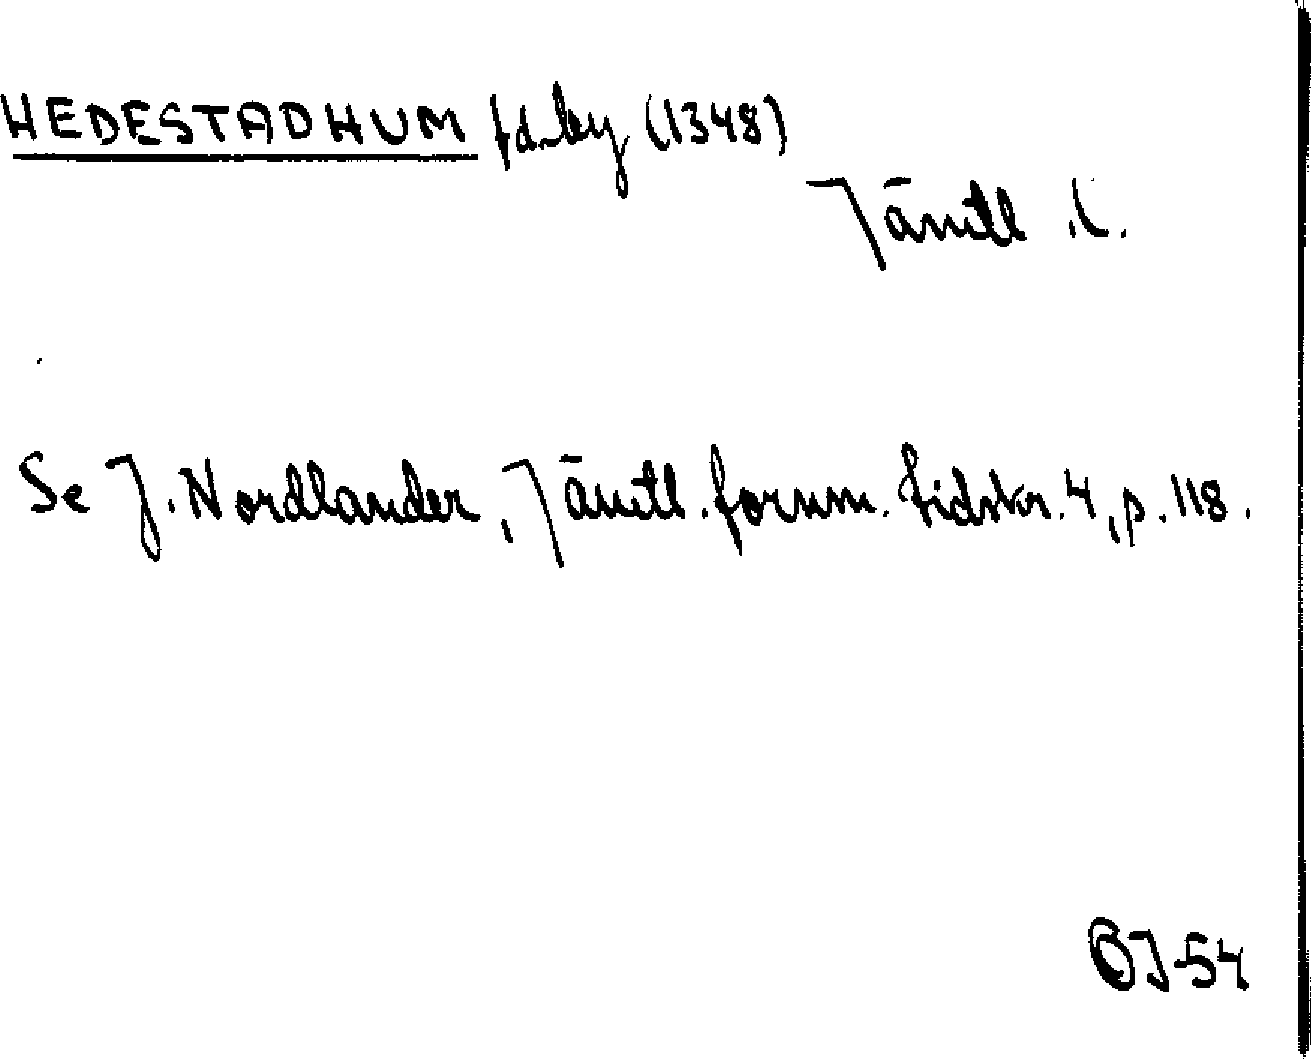 HEDESTADHUM fd. by (1348)
Jämtl. l.
Se J. Nordlander, Jämtl. fornm. tidskr. 4, p. 118.
OJ 54